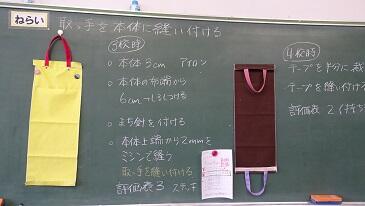 ねらい
取っ手を本体に縫い付ける
3校時
○ 本体3cm アイロン
○ 本体の布端から
6cm しるしつける
○ まち針を付ける
○ 本体上端から2mmを
ミシンで縫う
取っ手を縫い付ける
評価表3
4校時
テープを半分に裁
テープを縫い付け
評価表